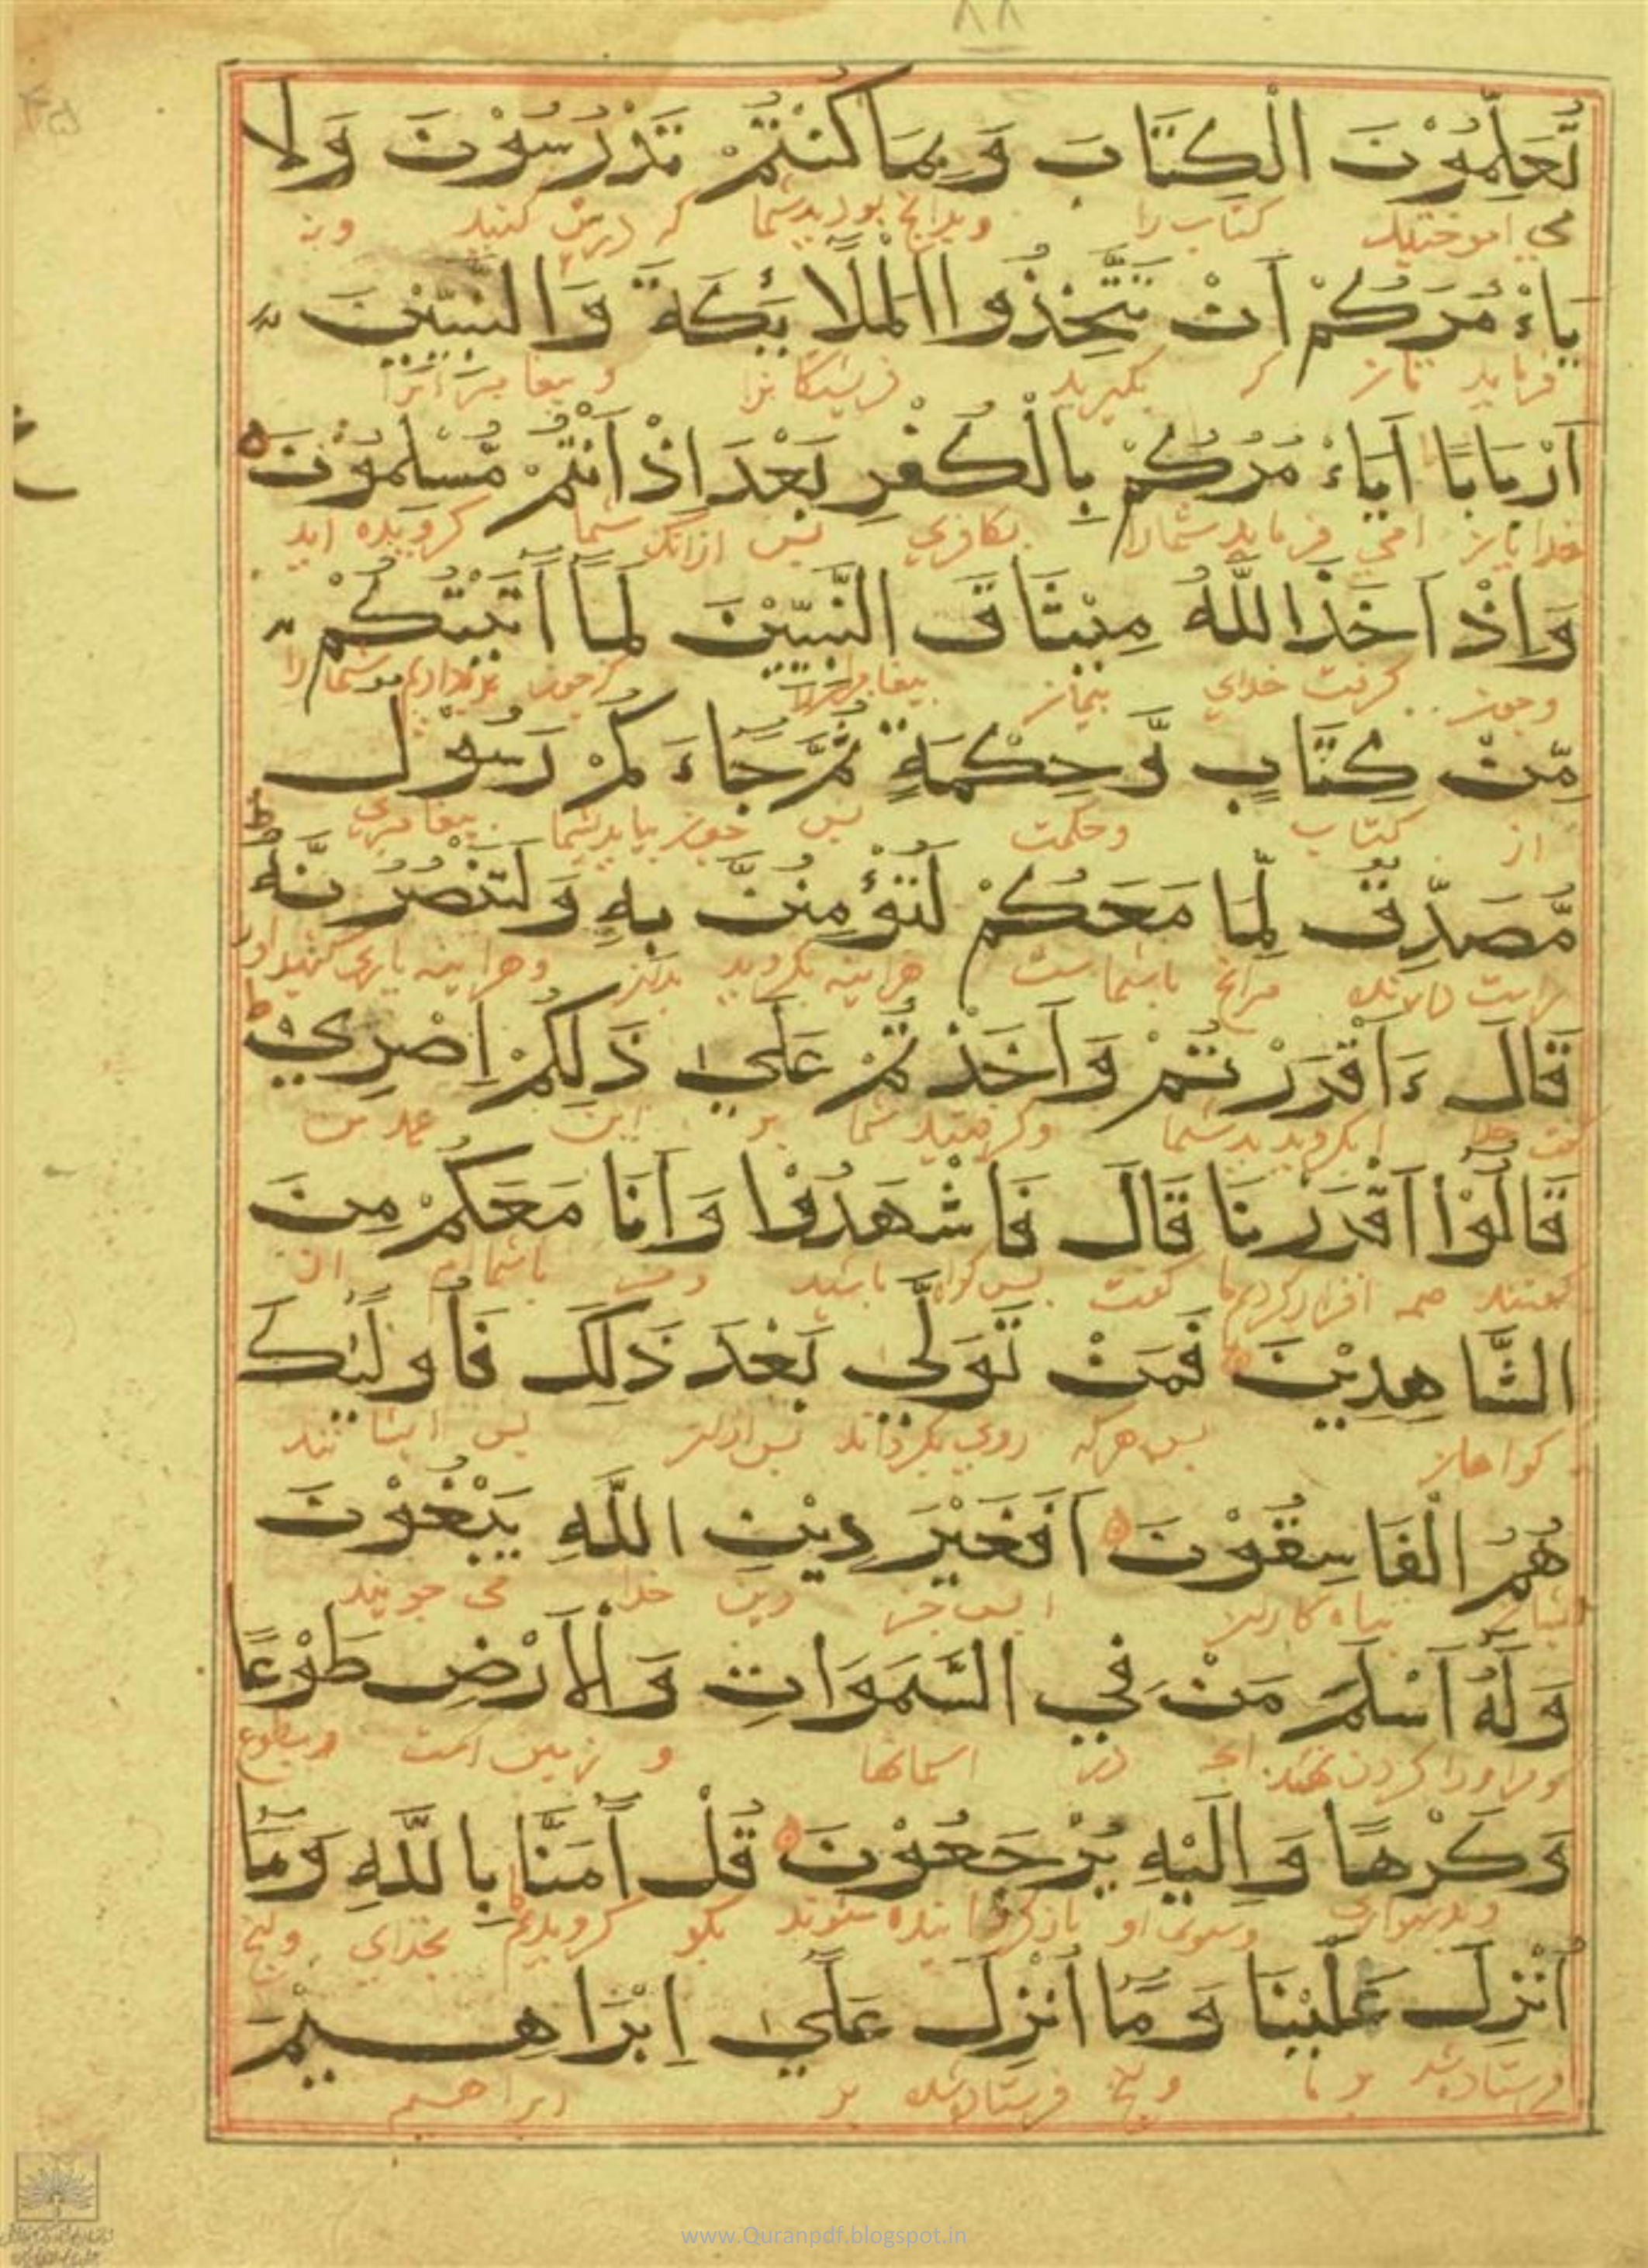 ٨٨
تُعَلِّمُوْنَ الْكِتَابَ وَبِمَا كُنْتُمْ تَدْرُسُوْنَ وَلَا
مي اموختيد كتاب را وبدانچ بوديد شما كه درس كنيد ونه
يَاءْمُرَكُمْ اَنْ تَتَّخِذُوا الْمَلَائِكَةَ وَالنَّبِيّٖنَ
فرمايد تان كه بگيريد فريشتگانرا و پيغامبرانرا
اَرْبَابًا اَيَاءْمُرُكُمْ بِالْكُفْرِ بَعْدَ اِذْ اَنْتُمْ مُّسْلِمُوْنَ
خدايان امي فرمايد شمارا بكافري پس ازانك شما گرويده ايد
وَاِذْ اَخَذَ اللّٰهُ مِيْثَاقَ النَّبِيّٖيْنَ لَمَآ اٰتَيْتُكُمْ
وچون گرفت خداي پيمان شمارا
مِّنْ كِتَابٍ وَّحِكْمَةٍ ثُمَّ جَاءَكُمْ رَسُوْلٌ
از كتاب وحكمت پس چون بيايد بشما پيغامبري
مُّصَدِّقٌ لِّمَا مَعَكُمْ لَتُؤْمِنُنَّ بِهٖ وَلَتَنْصُرُنَّهُ ط
مرانچ باشماست هراينه بگرويد بدان وهراينه ياري كنيد اورا
قَالَ ءَاَقْرَرْتُمْ وَاَخَذْتُمْ عَلٰي ذَلِكُمْ اِصْرِيْ ط
گفت خدا اگرويديد شما وگرفتيد شما بر اين عهد من
قَالُوْا اَقْرَرْنَا قَالَ فَاشْهَدُوْا وَاَنَا مَعَكُمْ مِنَ
گفتند همه اقرار كرديم ما گفت پس گواه باشيد ومن باشماام از
الشَّاهِدِيْنَ فَمَنْ تَوَلّٰي بَعْدَ ذَلِكَ فَاُولٰئِكَ
گواهان پس هركه روي بگرداند پس ازان پس ايشانند
هُمُ الْفَاسِقُوْنَ اَفَغَيْرَ دِيْنِ اللّٰهِ يَبْغُوْنَ
ايشان تباه كاران ا پس جز دين خدا مي جويند
وَلَهُ اَسْلَمَ مَنْ فِي السَّمَوَاتِ وَالْاَرْضِ طَوْعًا
ومراورا گردن نهند انچ در اسمانها و زمين است وبطوع
وَكَرْهًا وَاِلَيْهِ يُرْجَعُوْنَ قُلْ اٰمَنَّا بِاللّٰهِ وَمَا
وبدشواري وسوي او بازگردانيده شوند بگو گرويديم بخداي وانچ
اُنْزِلَ عَلَيْنَا وَمَا اُنْزِلَ عَلٰي اِبْرَاهِيْمَ
فرستاده شد بر ما وانچ فرستاده شد بر ابراهيم
www.Quranpdf.blogspot.in